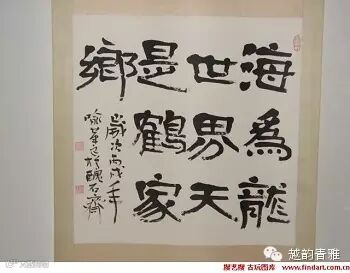 海為龍
世界天
是鶴家
鄉
歲次丙戌年
於醜石齋
越韵青雅
搜艺搜 古玩图库 www.findart.com.cn